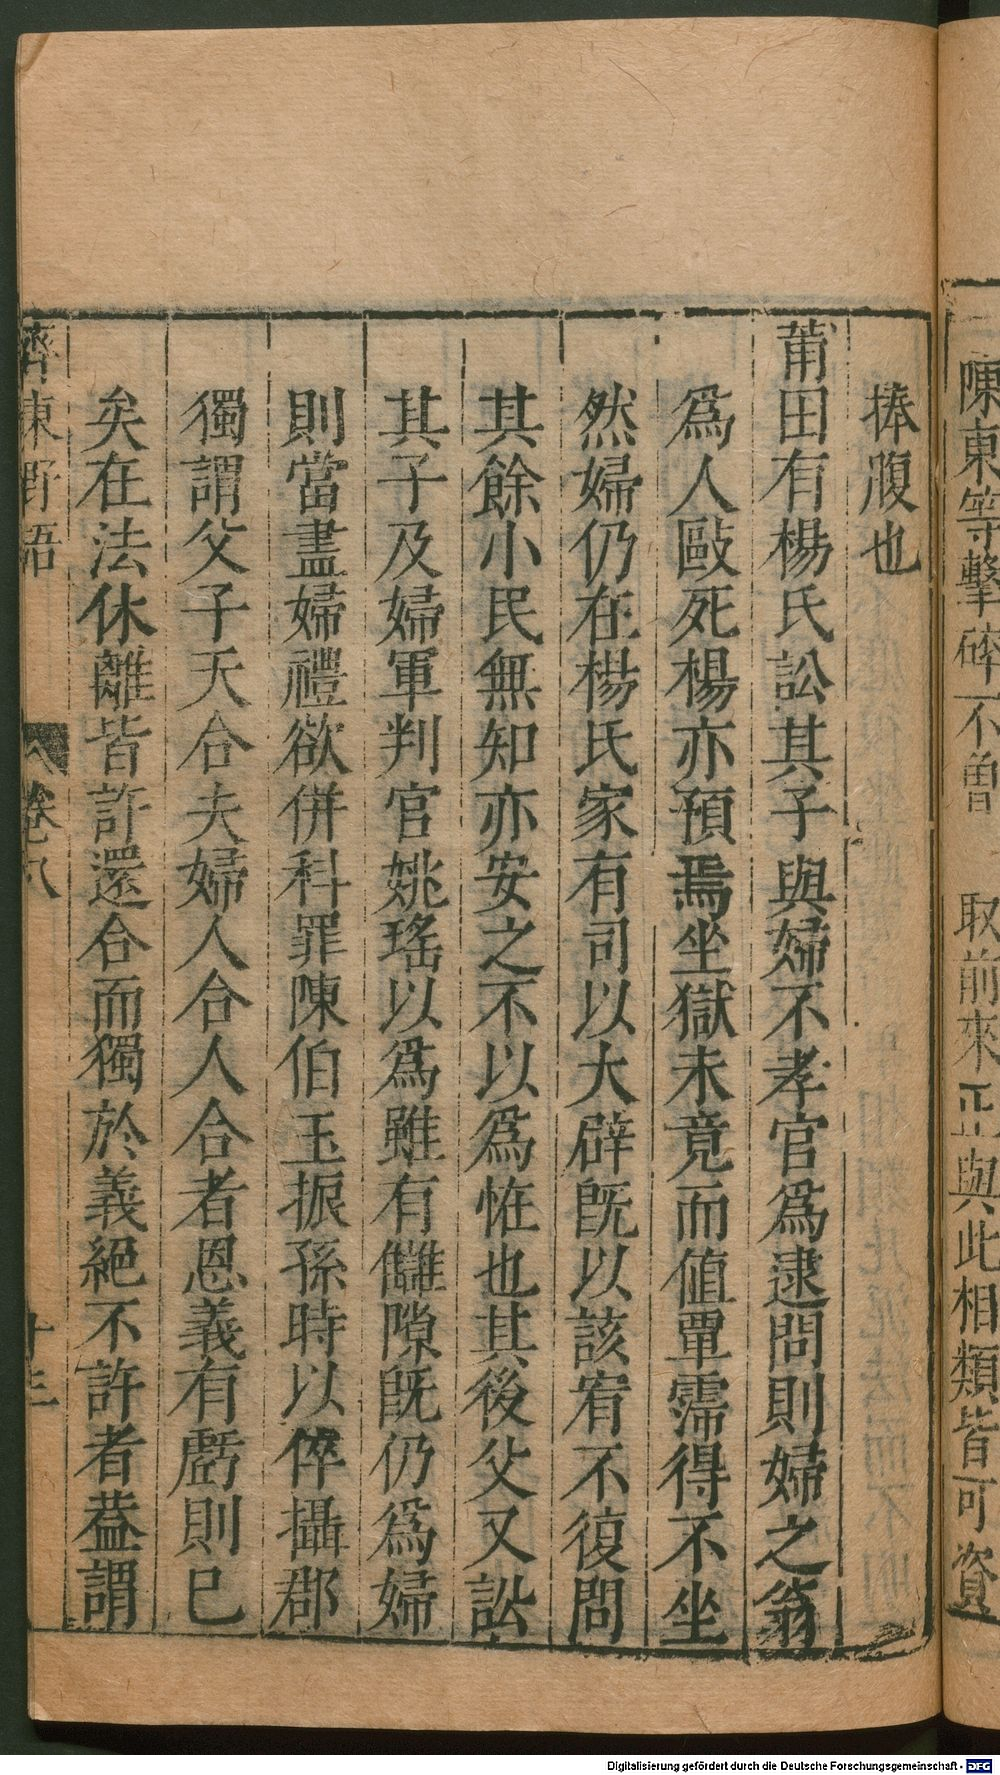 陳東等擊碎不曾　取前來正與此相類皆可資
捧腹也
莆田有楊氏訟其子與婦不孝官爲逮問則婦之翁
爲人毆死楊亦預焉坐獄未竟而值覃霈得不坐
然婦仍在楊氏家有司以大辟既以該宥不復問
其餘小民無知亦安之不以爲恠也其後父又訟
其子及婦軍判官姚瑤以爲雖有讎隙既仍爲婦
則當盡婦禮欲併科罪陳伯玉振孫時以倅攝郡
獨謂父子天合夫婦人合人合者恩義有虧則已
矣在法休離皆許還合而獨於義絕不許者葢謂
齊東野語　卷八　十三
Digitalisierung gefördert durch die Deutsche Forschungsgemeinschaft - DFG